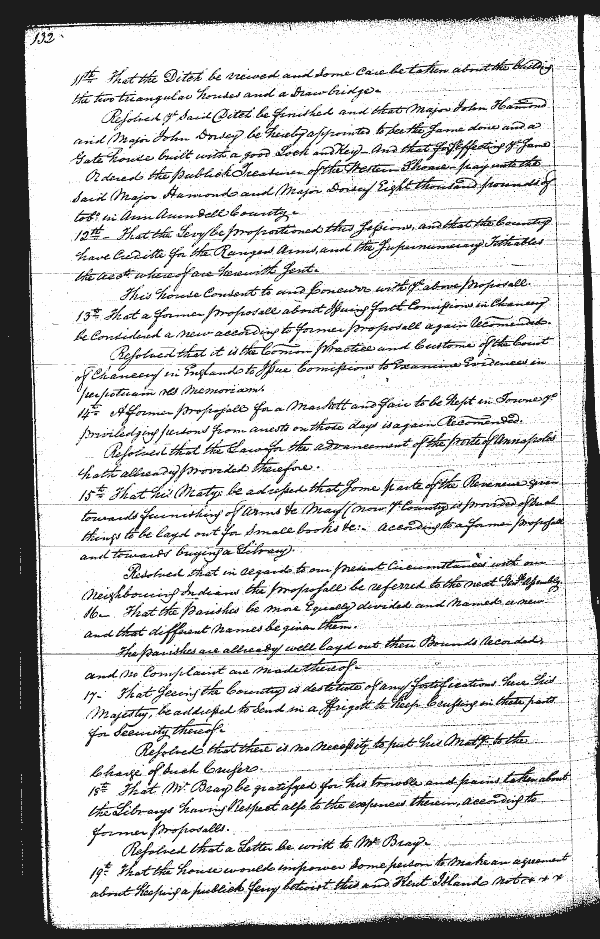 132.
11th That the Ditch be viewed and some Care be taken about the building
the two triangular houses and a Draw bridge.
Resolved ye Said Ditch be finished and that Major John Hamond
and Major John Dorsey be hereby appointed to see the Same done and a
Gate house built with a good Lock and Key. And that for effecting ye Same
Ordered the publick Treasurer of the Western Shoare pay unto the
Said Major Hamond and Major Dorsey Eight thousand pounds of
tobo. in Ann Arundell County.
12th- That the Levy be proportioned this Session, and that the Country
have Creditte for the Rangers Arms, and the Supernumerary Tithables
the acct. whereof are herewith Sent.
This house Consent to and Concurr with ye above proposall.
13th That a former proposall about Issuing forth Comissions in Chancery
be Considered a new according to former proposall again Recomended.
Resolved that it is the Comon practice and Custome of the Court
of Chancery in England to Issue Comissions to Examine Evidences in
perpetuam rei Memoriam.
14th A former proposall for a Markett and Fair to be Kept in Towne &c
priviledging persons from arrests on those days is again Recomended.
Resolved that the Law for the advancement of the porte of Annapolis
hath allready provided therefore.
15th That his Maty: be advised that Some parte of the Revenue given
towards furnishing of Arms &c May (now ye County is provided of Such
things to be layd out for Small books &c:- According to a former proposall
and towards buying a Library).
Resolved that in regard to our present Circumstances with our
Neighbouring Indians the proposall be referred to the next Assembly
16- That the parishes be more Equally divided and Named a new
and that different Names be given them.
The parishes are allready well layd out their Bounds Recorded,
and no Complaint are made thereof.
17- That Seeing the Country is destitute of any fortifications here his
Majesty, be addressed to Send in a Frigott to Keep Cruising in these parts
for Security thereof.
Resolved that there is no necessity to put his Maty. to the
Charge of Such Cruiser.
18th That Mr. Bray be gratifyed for his trouble and pains taken about
the Librarys having Respect also to the expences therein, according to
former proposalls.
Resolved that a Letter be writt to Mr Bray.
19th That the house would impower Some person to Make an agreement
about Keeping a publick ferry betwixt this and Kent Island not